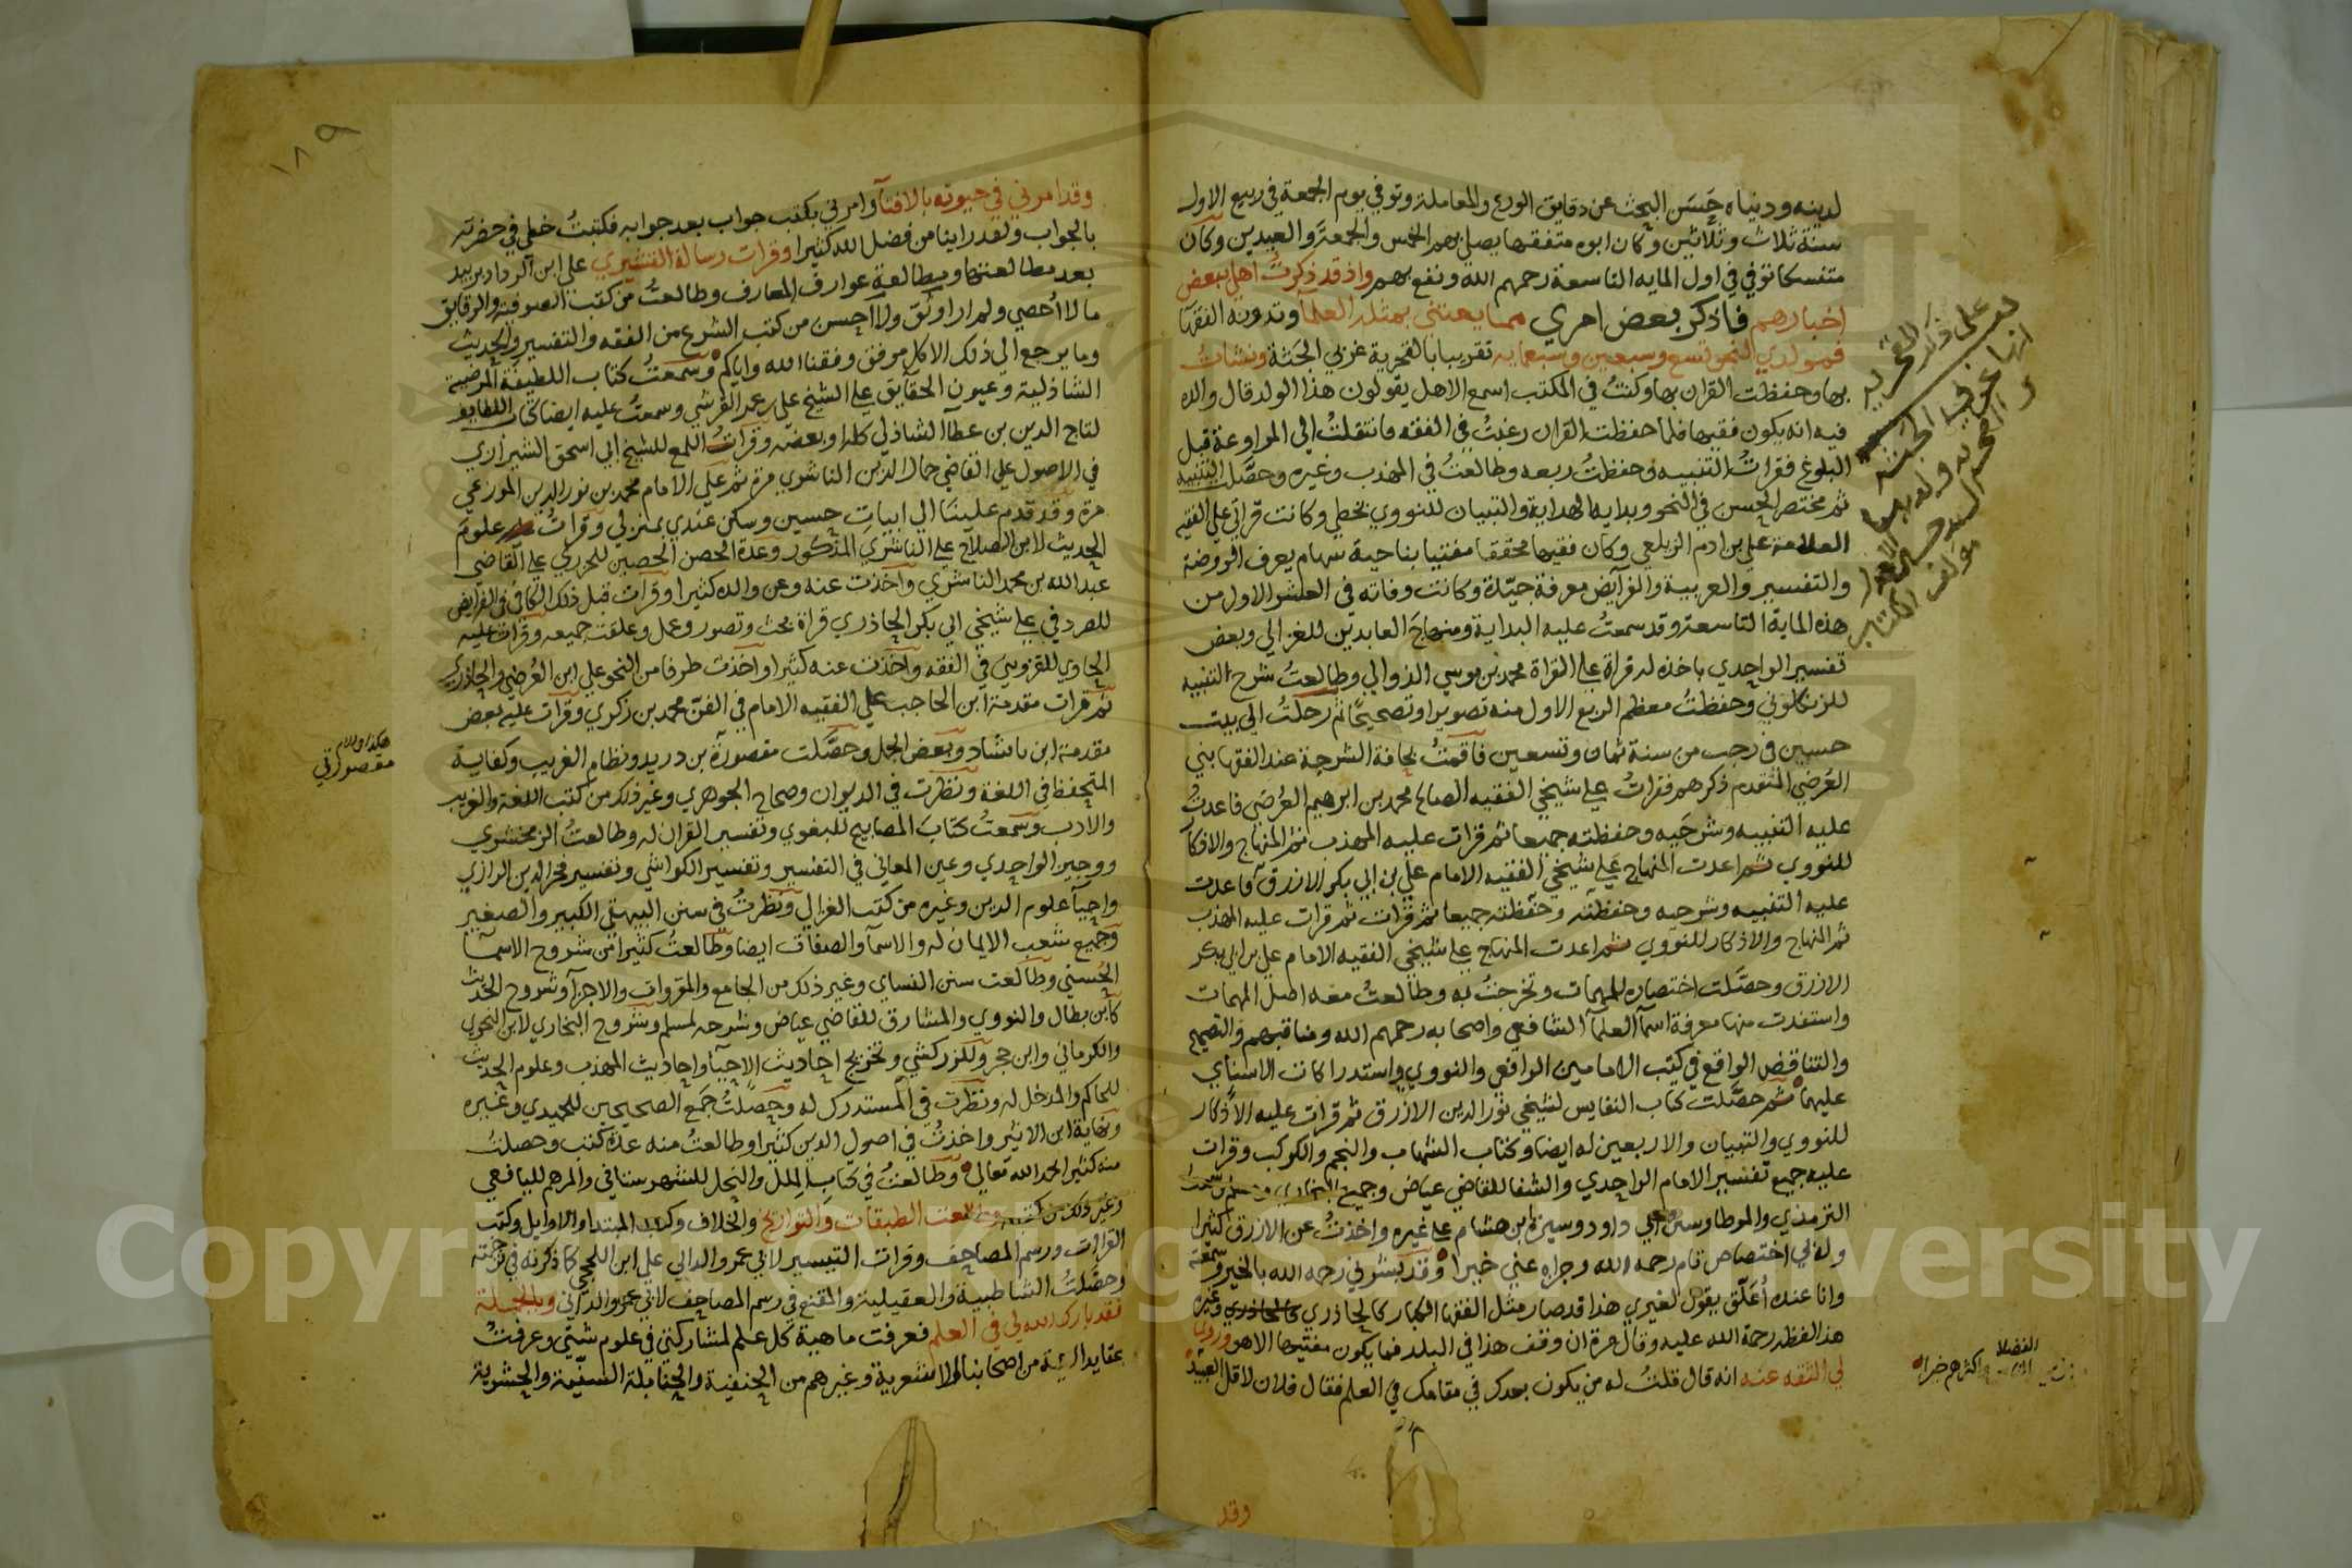 لدينه ودنياه حسن البحث عن دقايق الورع والمعاملة وتوفي يوم الجمعة في ربيع الاول
سنة ثلاث وثلاثين وكان ابوه متفقها يصلي بهم الخمس والجمعة والعيدين وكان
متنسكا توفي في اول المايه التاسعة رحمهم الله ونفع بهم واذ قد ذكرت اهلي ببعض
اخبارهم فاذكر بعض امري مما يعتني بمثله العلما وتدونه الفقها
فمولدي النحو تسع وسبعين وسبعمايه تقريبا بالقحرية غربي الجثة ونشات
بها وحفظت القران بها وكنت في المكتب اسمع الاهل يقولون هذا الولد قال والده
فيه انه يكون فقيها فلما حفظت القران رغبت في الفقه فانتقلت الي المراوعة قبل
البلوغ فقرات التنبيه وحفظت ربعه وطالعت في المهذب وغيره وحصلت التنبيه
ثم مختصر الحسن في النحو وبداية الهداية والتبيان للنووي بخطي وكانت قراتي علي الفقيه
العلامة علي بن ادم الزيلعي وكان فقيها محققا مفتيا بناحية سهام يعرف الروضة
والتفسير والعربية والفرآيض معرفة جيدة وكانت وفاته في العشر الاول من
هذه الماية التاسعة وقد سمعت عليه البداية ومنهاج العابدين للغزالي وبعض
تفسير الواحدي باخذه له قراة علي القراة محمد بن موسي الذوالي وطالعت شرح التنبيه
للزنكلوني وحفظت معظم الربع الاول منه تصويرا وتصحيحا ثم رحلت الي بيت
حسين في رجب من سنة ثمان وتسعين فاقمت بحافة الشرجة عند الفقها بني
العرضي المتقدم ذكرهم فقرات علي شيخي الفقيه الصالح محمد بن ابرهيم العرضي فاعدت
عليه التنبيه وشرحيه وحفظته جميعا ثم قرات عليه المهذب ثم المنهاج والاذكار
للنووي ثم اعدت المنهاج علي شيخي الفقيه الامام علي بن ابي بكر الازرق فاعدت
عليه التنبيه وشرحيه وحفظته وحفظته جميعا ثم قرات ثم قرات عليه المهذب
ثم المنهاج والاذكار للنووي ثم اعدت المنهاج علي شيخي الفقيه الامام علي بن ابي بكر
الازرق وحصلت اختصاره للمهمات وتخرجت به وطالعت معه اصل المهمات
واستفدت منها معرفة اسما العلما الشافعي واصحابه رحمهم الله ومناقبهم والتصحيح
والتناقض الواقع في كتب الامامين الرافعي والنووي واستدراكات الاسناي
عليهما ثم حصلت كتاب النفايس لشيخي نور الدين الازرق ثم قرات عليه الاذكار
للنووي والتبيان والاربعين له ايضا وكتاب الشهاب والنجم والكوكب وقرات
عليه جميع تفسير الامام الواحدي والشفا للقاضي عياض وجميع البخاري
الترمذي والموطا وسنن ابي داود وسيرة ابن هشام علي غيره واخذت عن الازرق كثيرا
وله لي اختصاص تام رحمه الله وجزاه عني خيرا وقد بشرني رحمه الله بالخير وسمعته
وانا عنده اعلق يقول لغيري هذا قد صار مثل الفقها الكبار كالجاذري وغيره
هذا لفظه رحمة الله عليه وقال مرة ان وقف هذا في البلد فما يكون مفتيها الا هو وروي
لي الثقه عنه انه قال قلت له من يكون بعدك في مقامك في العلم فقال فلان لاقل العبيد
وقد
علي ذكر القحرية
انها غربي الجثة
مولف الكتاب
الفضلا
اكثرهم خيرا
١٨٩
وقد امرني في حيوته بالافتآ وامرني بكتب جواب بعد جوابه فكتبت خطي في حضرته
بالجواب ولقد راينا من فضل الله كثيرا وقرات رسالة القشيري علي ابن الرداد بزبيد
بعد مطالعتها ومطالعة عوارف المعارف وطالعت من كتب الصوفية والرقايق
ما لا احصي ولم ار اوثق ولا احسن من كتب الشرع من الفقه والتفسير والحديث
وما يرجع الي ذلك الا كل موفق وفقنا الله واياكم وسمعت كتاب اللطيفة المرضية
الشاذلية وعيون الحقايق علي الشيخ علي بن عمر القرشي وسمعت عليه ايضا كتاب اللطايف
لتاج الدين بن عطآ الشاذلي كله او بعضه وقرات اللمع للشيخ ابي اسحق الشيرازي
في الاصول علي القاضي جمال الدين الناشري مرة ثم علي الامام محمد بن نور الدين الموزعي
مرة وقد قدم علينا الي ابيات حسين وسكن عندي بمنزلي وقرات علوم
الحديث لابن الصلاح علي الناشري المذكور وعدة الحصن الحصين للجزري علي القاضي
عبدالله بن محمد الناشري واخذت عنه وعن والده كثيرا وقرات قبل ذلك الكافي في الفرايض
للصردفي علي شيخي ابي بكر الجاذري قراة بحث وتصور وعمل وعلقت جميعه وقرات عليه
الحاوي للقزويني في الفقه واخذت عنه كثيرا واخذت طرفا من النحو علي ابن العرضي والجاذري
ثم قرات مقدمة ابن الحاجب علي الفقيه الامام في الفن محمد بن زكري وقرات عليه بعض
مقدمة ابن بابشاد وبعض الجمل وحصلت مقصورة بن دريد ونظام الغريب وكفاية
المتحفظ في اللغة ونظرت في الديوان وصحاح الجوهري وغير ذلك من كتب اللغة والغريب
والادب وسمعت كتاب المصابيح للبغوي وتفسير القران له وطالعت الزمخشري
ووجيز الواحدي وعين المعاني في التفسير وتفسير الكواشي وتفسير فخر الدين الرازي
واحيآ علوم الدين وغيره من كتب الغزالي ونظرت في سنن البيهقي الكبير والصغير
وجميع شعب الايمان له والاسمآ والصفات ايضا وطالعت كثيرا من شروح الاسمآ
الحسني وطالعت سنن النساي وغير ذلك من الجامع والمقروات والاجزآ وشروح الحديث
كابن بطال والنووي والمشارق للقاضي عياض وشرحه لمسلم وشروح البخاري لابن النحوي
والكرماني وابن حجر وللزركشي وتخريج احاديث الاحيآ واحاديث المهذب وعلوم الحديث
للحاكم والمدخل له ونظرت في المستدرك له وحصلت جمع الصحيحين للحميدي وغيره
ونهاية ابن الاثير واخذت في اصول الدين كثيرا وطالعت منه عدة كتب وحصلت
منه كثيرا بحمد الله تعالي وطالعت في كتاب الملل والنحل للشهرستاني والمرهم لليافعي
وغير ذلك من كتبه وطالعت الطبقات والتواريخ والخلاف وكتب المبتدا والاوايل وكتب
القرات ورسم المصاحف وقرات التيسير لابي عمرو الداني علي ابن اللحجي كما ذكرته في ترجمته
وحصلت الشاطبية والعقيلية والمقنع في رسم المصاحف لابي عمرو الداني وبالجملة
فقد بارك الله لي في العلم فعرفت ماهية كل علم لمشاركتي في علوم شتي وعرفت
عقايد الايمة من اصحابنا الاشعرية وغيرهم من الحنفية والحنابلة السنية والحشوية
هكذا في الام
مقصورتي
Copyright © King Saud University